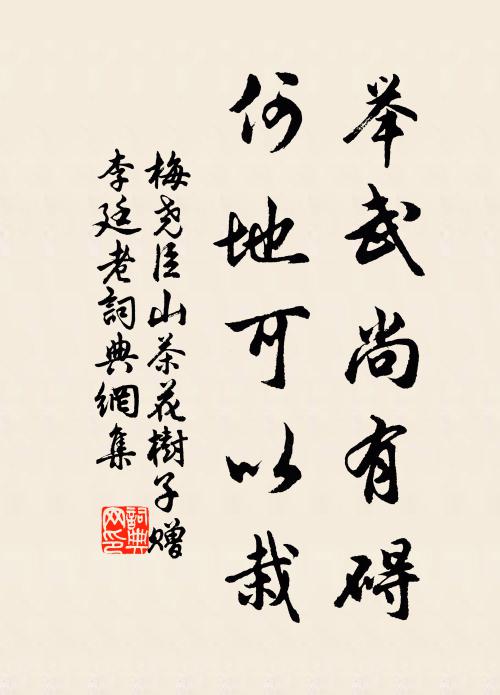 举武尚有碍
何地可以栽
梅尧臣山茶花樹子赠
李廷老詞典網集
詞典网印